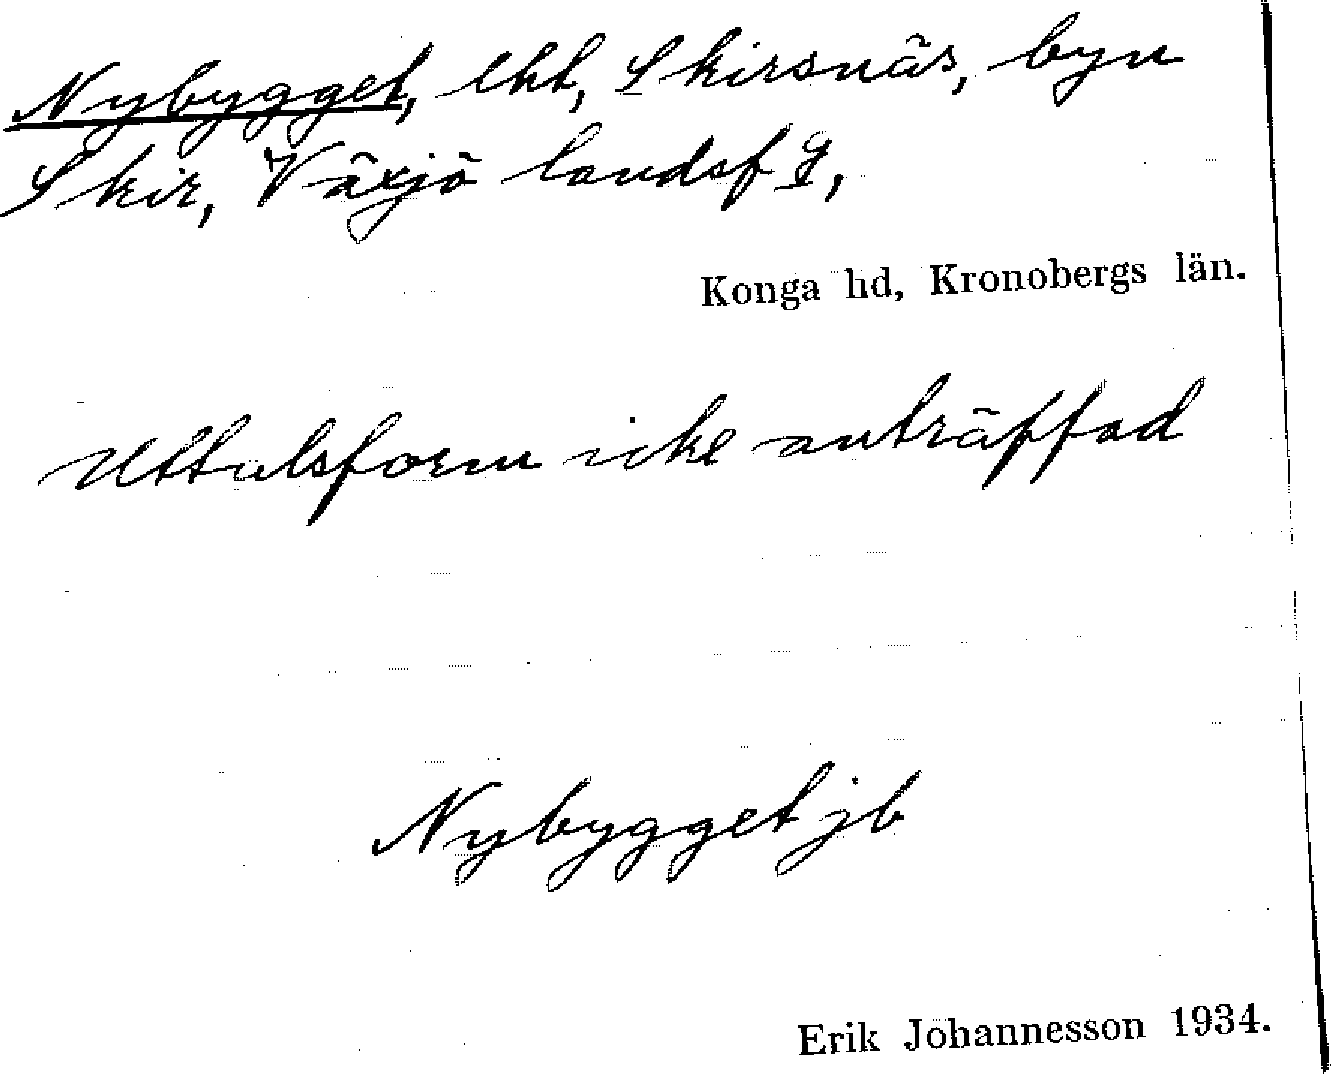 Nybygget, lht, Skirsnäs, byn
Skir, Växjö landsf S,
Konga hd, Kronobergs län.
Uttalsform icke anträffad
Nybygget jb
Erik Johannesson 1934.